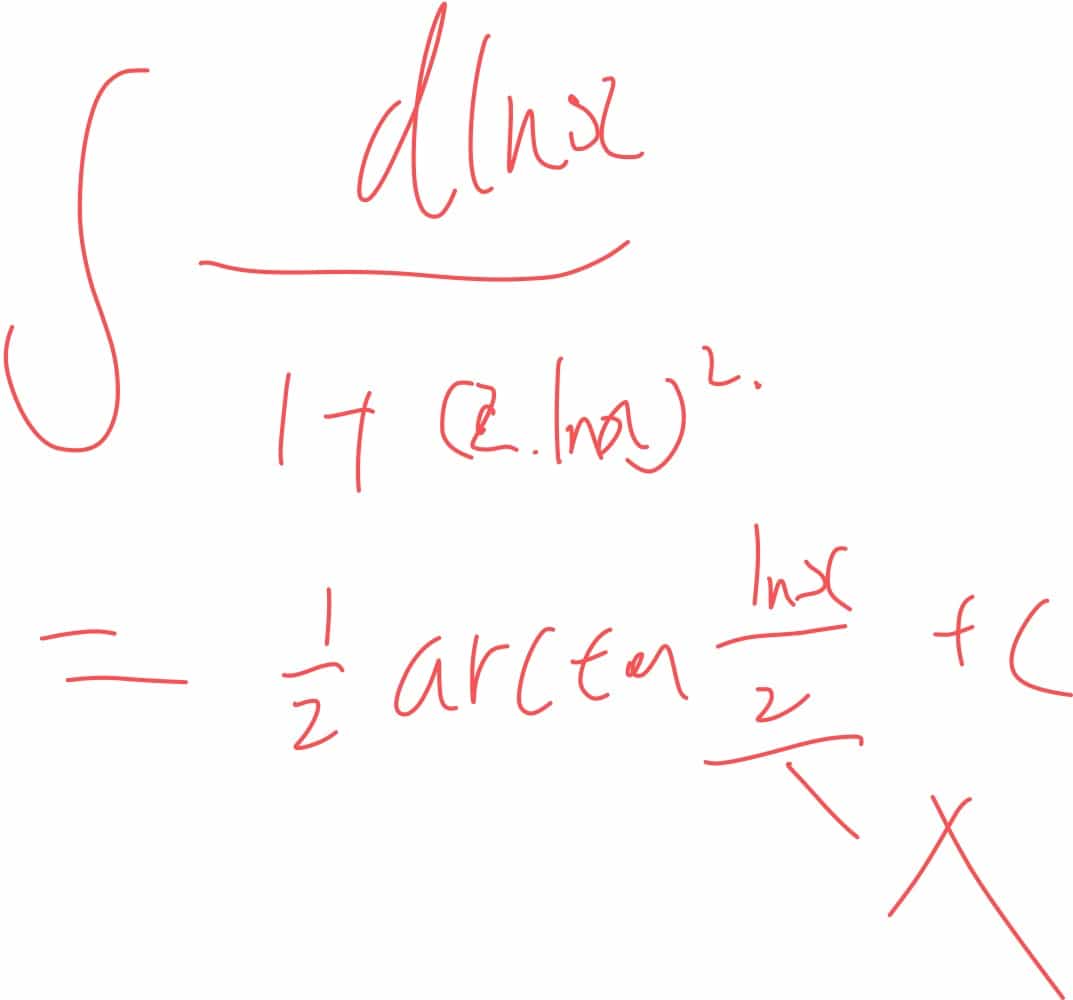 ∫ dlnx / 1+(2.lnx)².
= 1/2 arctan lnx/2 + C
X